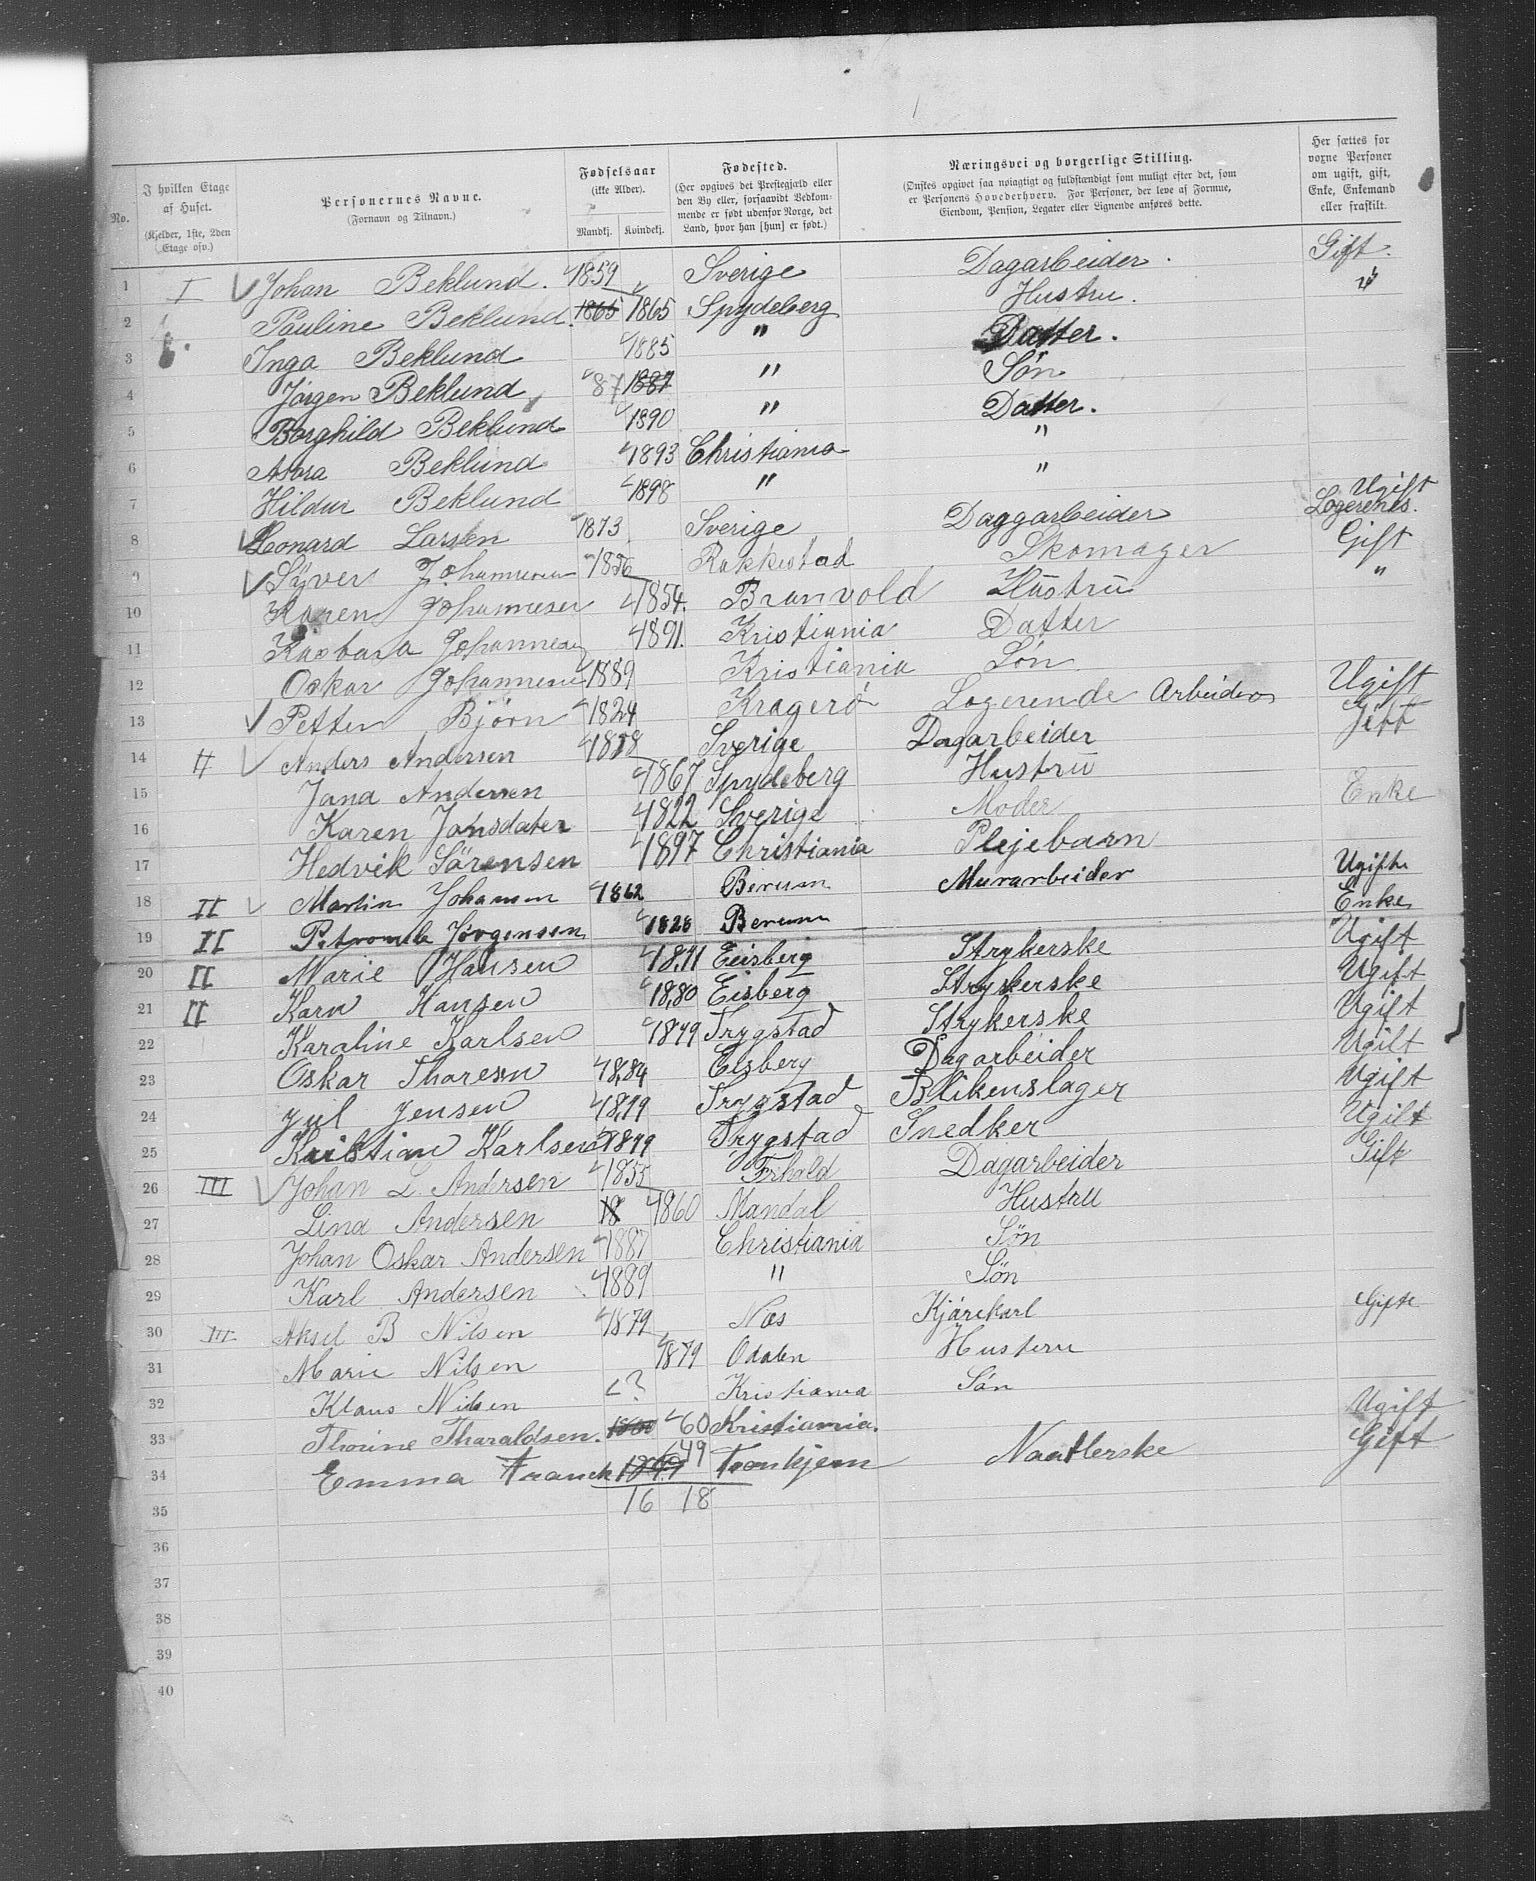 No.
I hvilken Etage af Huset. (Kjelder, 1ste, 2den Etage osv.)
Personernes Navne. (Fornavn og Tilnavn.)
Fødselsaar (ikke Alder). Mandkj. Kvindekj.
Fødested. (Her opgives det Prestegjæld eller den By eller, forsaavidt Vedkommende er født udenfor Norge, det Land, hvor han [hun] er født.)
Næringsvei og borgerlige Stilling. (Ønskes opgivet saa nøiagtigt og fuldstændigt som muligt efter det, som er Personens Hovederhverv. For Personer, der leve af Formue, Eiendom, Pension, Legater eller Lignende anføres dette.
Her sættes for voxne Personer om ugift, gift, Enke, Enkemand eller fraskilt.
1 I Johan Beklund. 1859 Sverige Dagarbeider. Gift.
2 Pauline Beklund. 1865 1865 Spydeberg Hustru. "
3 Inga Beklund 1885 " Datter.
4 Jørgen Beklund 87 1887 " Søn
5 Borghild Beklund 1890 " Datter.
6 Beklund 1893 Christiania "
7 Hildur Beklund 1898 " "
8 Leonard Larsen 1873 Sverige Daggarbeider Ugift Logerenes.
9 Syver Johannesen 1856 Rakkestad Skomager Gift
10 Karen Johannesen 1854. Branvold Hustru "
11 Johannesen 1891. Kristiania Datter
12 Oskar Johannesen 1889 Kristiania Søn
13 Petter Bjørn 1824 Kragerö Logerende Arbeider Ugift
14 II Anders Andersen 1858 Sverige Dagarbeider Gift
15 Jana Andersen 1867 Spydeberg Hustru
16 Karen Jansdater 1822 Sverige Moder Enke
17 Hedvik Sörensen 1897 Christiania Plejebarn
18 II Martin Johansen 1862 Berum Murarbeider Ugifte
19 II Jørgensen 1828 Berum Enke
20 II Marie Hansen 1871 Eisberg Strykerske Ugift
21 II Karn Hansen 1880 Eisberg Strykerske Ugift
22 Karaline Karlsen 1879 Trygstad Strykerske Ugift
23 Oskar Thoresen 1884 Eisberg Dagarbeider Ugift
24 Jul Jensen 1879 Trygstad Blikenslager Ugift
25 Kristian Karlsen 1879 Trygstad Snedker Ugift
26 III Johan L Andersen 1855 Dagarbeider Gift
27 Lina Andersen 18 1860 Mandal Hustru
28 Johan Oskar Andersen 1887 Christiania Søn
29 Karl Andersen 1889 " Søn
30 III Aksel B Nilsen 1879 Næs Kjørekarl Gifte
31 Marie Nilsen 1879 Odalen Husteru
32 Klaus Nilsen ? Kristiania Søn
33 Thorine Tharaldsen. 1860 60 Kristiania. Ugift
34 Emma Franck 1849 49 Tronhjem Naatlerske Gift
35 16 18
36
37
38
39
40